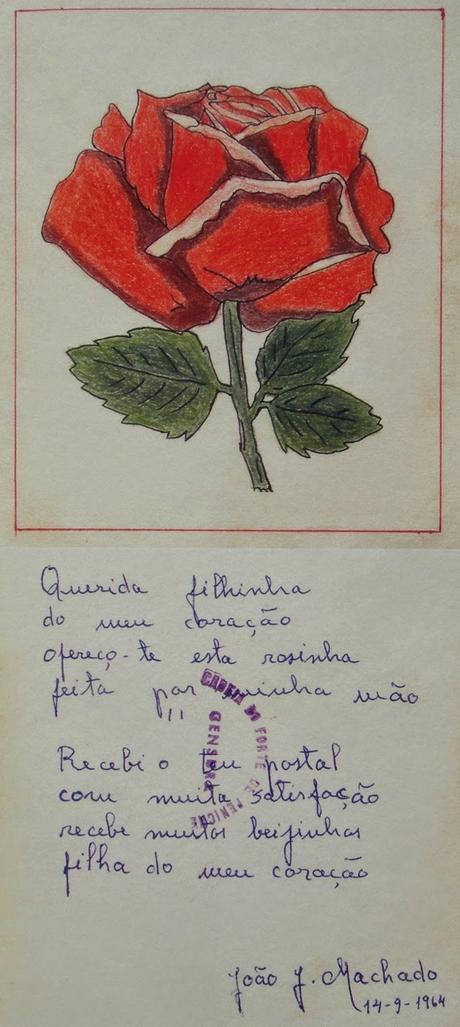 Querida filhinha
do meu coração
ofereço-te esta rosinha
feita por minha mão
"
CADEIA DO FORTE DE PENICHE
CENSURA
Recebi o teu postal
com muita satisfação
recebe muitos beijinhos
filha do meu coração
João J. Machado
14-9-1964